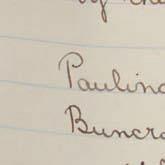 Paulina
Buncra